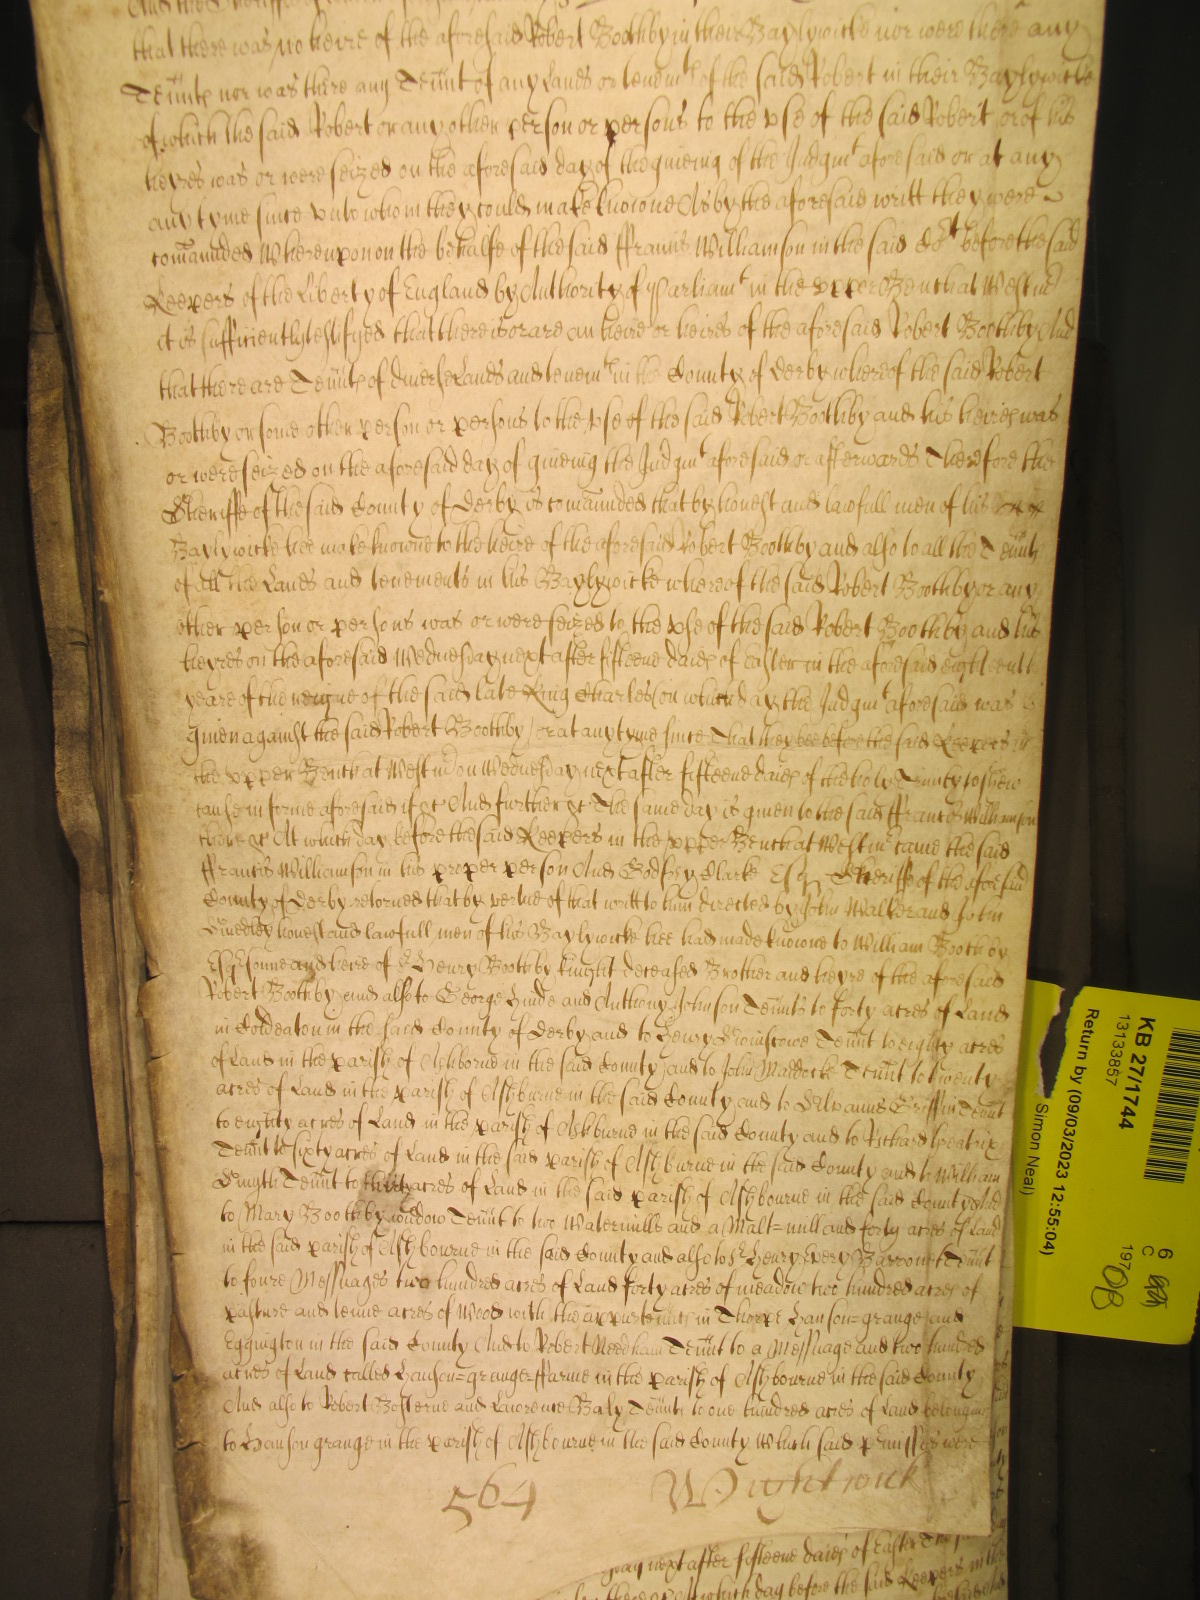 that there was no heire of the aforesaid Robert Boothby in their Baylywicke nor were there any
Teñnts nor was there any Teñnt of any Lands or tenemts of the said Robert in their Baylywicke
of which the said Robert or any other person or persons to the vse of the said Robert or of his
heyres was or were seized on the aforesaid day of the giueing of the Judgmt aforesaid or at any
any tyme since vnto whom they could make knowne As by the aforesaid writt they were
comañded Wherevpon on the behalfe of the said ffrancis Williamson in the said Cort before the said
Keepers of the Liberty of England by Authority of Parliamt in the vpper Bench at Westmr
it is sufficiently testifyed that there is or are an heire or heires of the aforesaid Robert Boothby And
that there are Teñnts of diuerse Lands and tenemts in the County of Derby whereof the said Robert
Boothby or some other person or persons to the vse of the said Robert Boothby and his heires was
or were seized on the aforesaid day of giueing the Judgmt aforesaid or afterwards Therefore the
Sheriffe of the said County of Derby is comañded that by honest and lawfull men of his
Baylywicke hee make knowne to the heire of the aforesaid Robert Boothby and also to all the Teñnts
of all the Lands and tenements in his Baylywicke whereof the said Robert Boothby or any
other person or persons was or were seized to the vse of the said Robert Boothby and his
heyres on the aforesaid Wednesday next after fifteene daies of Easter in the aforesaid eighteenth
yeare of the reigne of the said late King Charles (on which day the Judgmt aforesaid was
giuen against the said Robert Boothby) or at any tyme since That they bee before the said Keepers in
the vpper Bench at Westmr on Wednesday next after fifteene daies of the holy Trinity to shew
cause in forme aforesaid if &c And further &c The same day is giuen to the said ffrancis Williamson
there &c At which day before the said Keepers in the vpper Bench at Westmr came the said
ffrancis Williamson in his proper person And Godfrey Clarke Esqr Sheriffe of the aforesaid
County of Derby retorned that by vertue of that writt to him directed by John Walker and John
honest and lawfull men of his Baylywicke hee had made knowne to William Boothby
Esqr sonne and heire of Sr Henry Boothby knight deceased Brother and heyre of the aforesaid
Robert Boothby and also to George Hinde and Anthony Johnson Teñnts to forty acres of Land
in Coldeaton in the said County of Derby and to Henry Teñnt to eighty acres
of Land in the parish of Ashborne in the said County and to John Maddocke Teñnt to twenty
acres of Land in the parish of Ashburne in the said County and to Griffin Teñnt
to eighty acres of Land in the parish of Ashburne in the said County and to Richard
Teñnt to sixty acres of Land in the said parish of Ashburne in the said County and to William
Smyth Teñnt to thirty acres of Land in the said parish of Ashbourne in the said County And
to Mary Boothby widdow Teñnt to two Watermills and a Malt=mill and forty acres of Land
in the said parish of Ashbourne in the said County and also to Sr Henry Every Barronet Teñnt
to foure Messuages two hundred acres of Land forty acres of meadow two hundred acres of
pasture and tenne acres of Wood with the appurtenñts in Thorpe Hanson=grange and
Eggington in the said County And to Robert Needham Teñnt to a Messuage and two hundred
acres of Land called Hanson=grange=ffarme in the parish of Ashbourne in the said County
And also to Robert Bosterne and Lawrence Baly Teñnts to one hundred acres of Land belonging
to Hanson grange in the parish of Ashbourne in the said County Which said p̃misses were
564 Wightwick
day next after fifteene daies of Easter
there &c At which day before the said Keepers in the
KB 27/1744
13133857
Return by (09/03/2023 12:55:04)
Simon Neal)
6
C
197